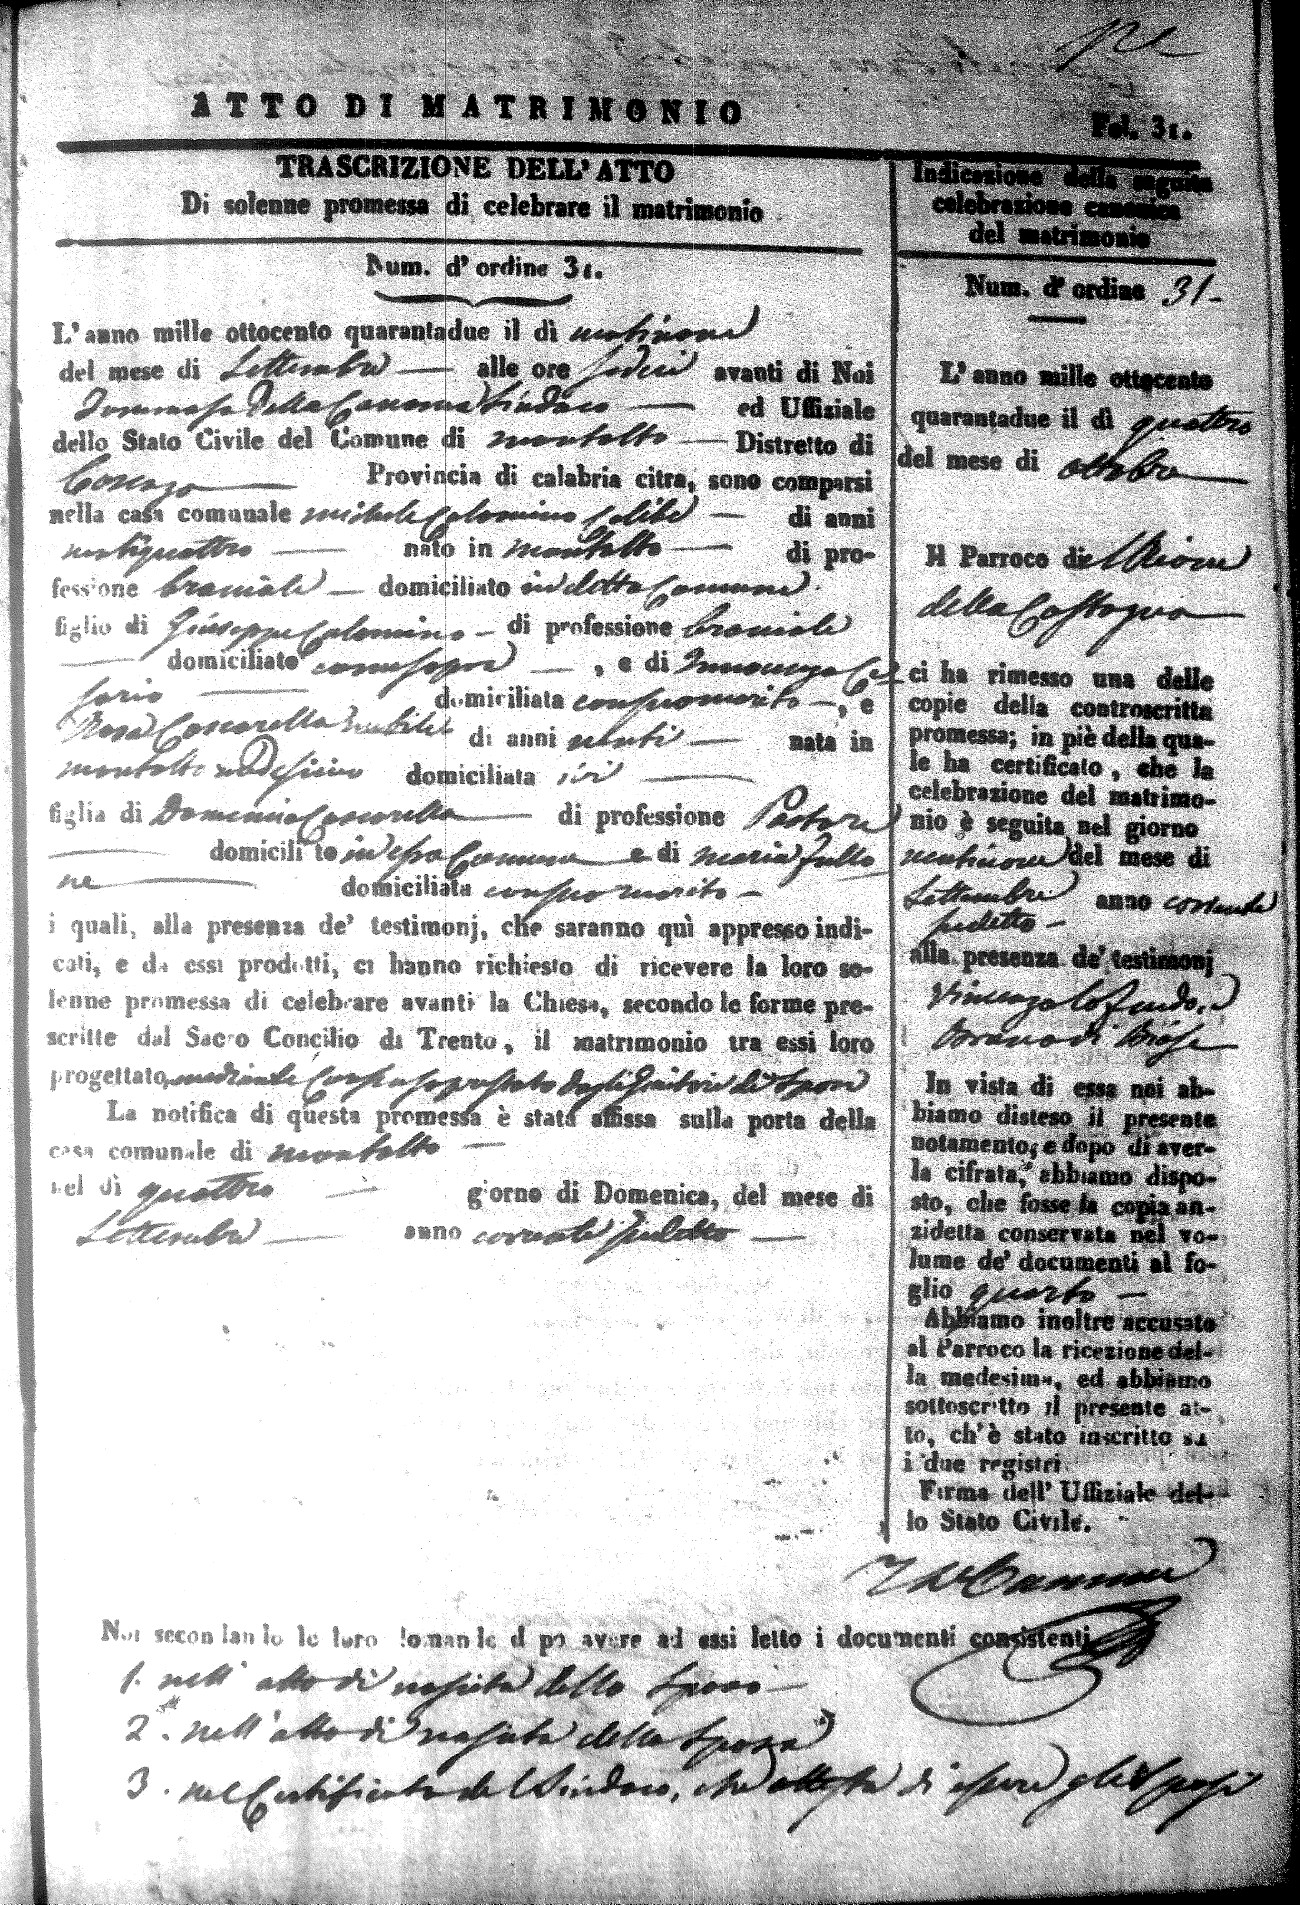 ATTO DI MATRIMONIO
Fol. 31.
TRASCRIZIONE DELL'ATTO
Di solenne promessa di celebrare il matrimonio
Num. d'ordine 31.
L'anno mille ottocento quarantadue il dì ventinove
del mese di Settembre alle ore sedeci avanti di Noi
Tommaso Della Cananea Sindaco ed Uffiziale
dello Stato Civile del Comune di montalto Distretto di
Cosenza Provincia di calabria citra, sono comparsi
nella casa comunale michele Colomino celibe di anni
ventiquattro nato in montalto di pro-
fessione bracciale domiciliato in detto Comune
figlio di Giuseppe Colomino di professione bracciale
domiciliato come sopra , e di Innocenza
domiciliata con suo marito , e
Rosa Coscarella nubile di anni venti nata in
montalto medesimo domiciliata ivi
figlia di Domenico Coscarella di professione Pastore
domiciliato in esso Comune e di maria Fullo
ne domiciliata con suo marito
i quali, alla presenza de' testimonj, che saranno quì appresso indi-
cati, e da essi prodotti, ci hanno richiesto di ricevere la loro so-
lenne promessa di celebrare avanti la Chiesa, secondo le forme pre-
scritte dal Sacro Concilio di Trento, il matrimonio tra essi loro
progettato, mediante Consenso prestato dagli Genitori di Sposi
La notifica di questa promessa è stata affissa sulla porta della
casa comunale di montalto
nel dì quattro giorno di Domenica, del mese di
Settembre anno corrente sudetto
Indicazione della seguita
celebrazione canonica
del matrimonio
Num. d' ordine 31
L'anno mille ottocento
quarantadue il dì quattro
del mese di ottobre
Il Parroco di
della
ci ha rimesso una delle
copie della controscritta
promessa; in piè della qua-
le ha certificato, che la
celebrazione del matrimo-
nio è seguita nel giorno
ventinove del mese di
Settembre anno corrente
sudetto
alla presenza de' testimonj
Vincenzo
di Biase
In vista di essa noi ab-
biamo disteso il presente
notamento, e dopo di aver-
la cifrata, abbiamo dispo-
sto, che fosse la copia an-
zidetta conservata nel vo-
lume de' documenti al fo-
glio quarto
Abbiamo inoltre accusato
al Parroco la ricezione del-
la medesima, ed abbiamo
sottoscritto il presente at-
to, ch'è stato inscritto su
i due registri
Firma dell' Uffiziale del-
lo Stato Civile.
Noi secondando le loro domande dopo avere ad essi letto i documenti consistenti
1. nell' atto di nascita dello Sposo
2. nell' atto di nascita della Sposa
3. nel Certificato del Sindaco, che attesta di essere gli Sposi